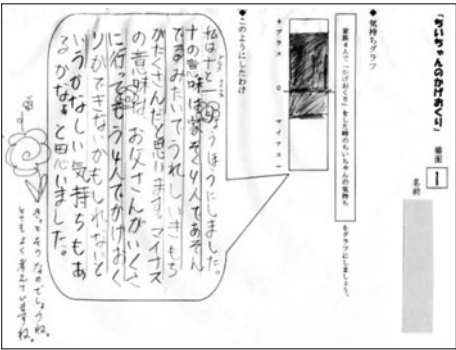 「ちいちゃんのかげおくり」 場面 1
名前
◆気持ちグラフ
家族4人で「かげおくり」をした時のちいちゃんの気持ち をグラフにしましょう。
+プラス 0 マイナス-
◆このようにしたわけ
私は+と-りょうほうにしました。
+の意味は家ぞく4人であそん
でるみたいでうれしいきもち
がたくさんだと思います。マイナス
の意味は、お父さんがいくさ
に行ってもう4人でかげおく
りができないかもしれないと
いうかなしい気持ちもあ
るかな。と思いました。
きっとそうなのでしょうね。
とてもよく考えていますね。